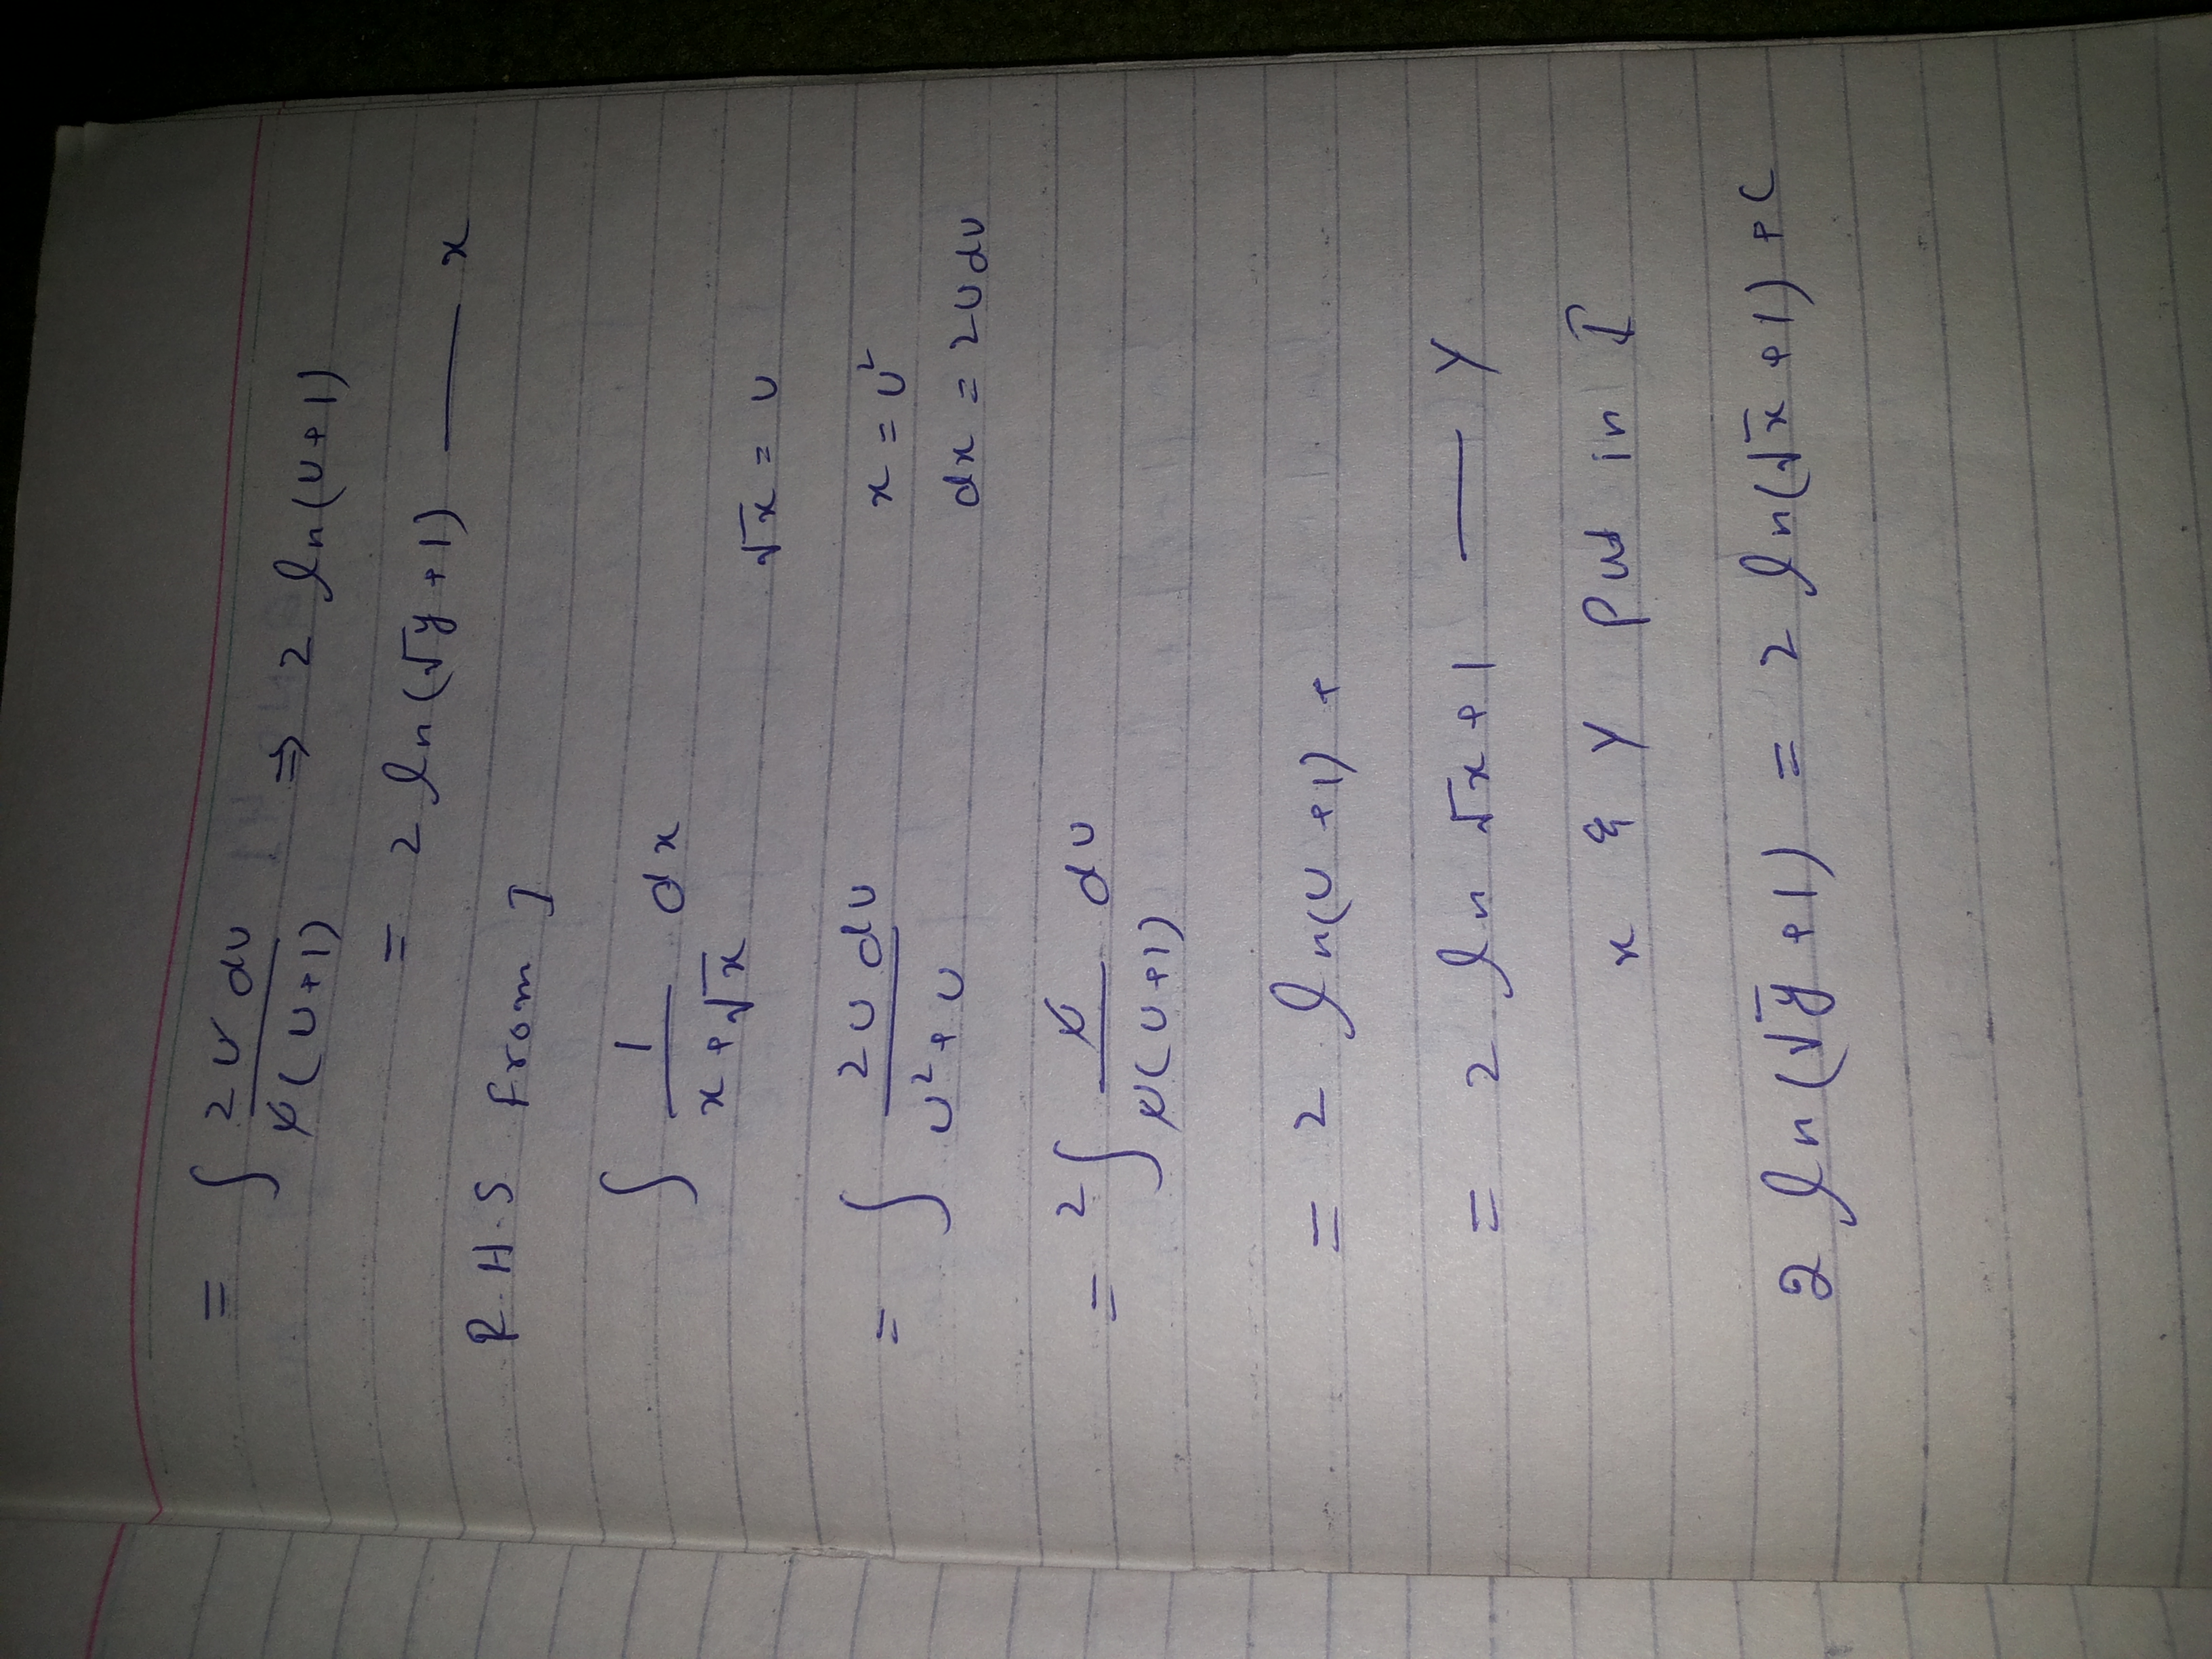 = ∫ 2U dU / U(U+1) ⇒ 2 ln(U+1)
= 2 ln(√y+1) — x
R.H.S From I
∫ 1 / x+√x dx
√x = U
= ∫ 2U dU / U²+U
x = U²
dx = 2U dU
= 2∫ U / U(U+1) dU
= 2 ln(U+1) +
= 2 ln √x+1 — Y
x & Y Put in I
2 ln(√y+1) = 2 ln(√x+1)+C